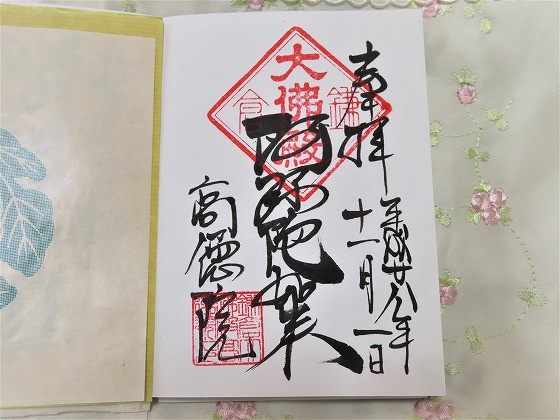 奉拝
平成廿八年
十一月一日
大佛殿
鎌倉
阿弥陀業
高徳院